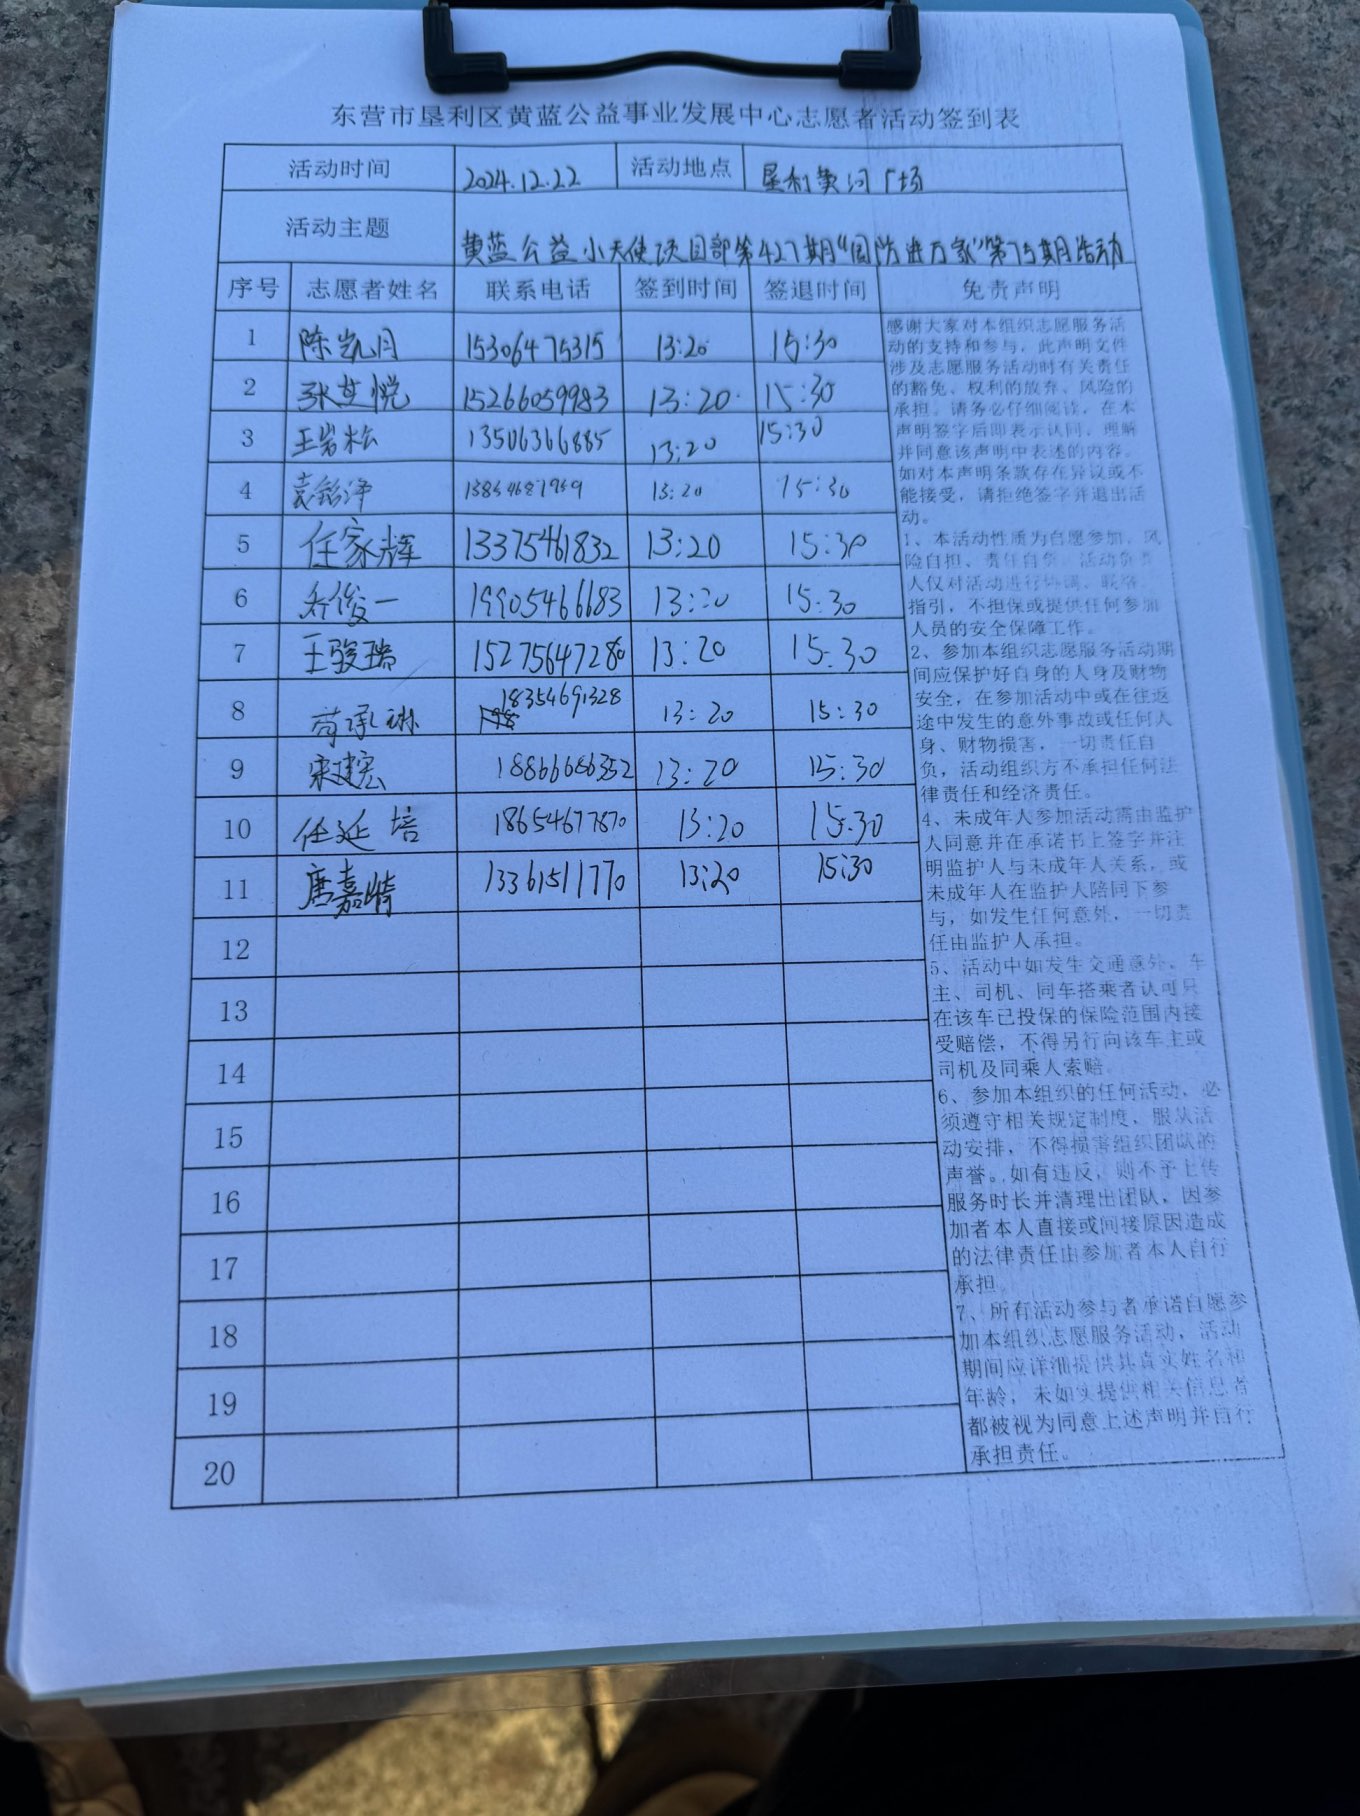 东营市垦利区黄蓝公益事业发展中心志愿者活动签到表
活动时间 2024.12.22 活动地点 垦利黄河广场
活动主题 黄蓝公益小天使项目部第427期“国防进万家”第75期活动
序号 志愿者姓名 联系电话 签到时间 签退时间 免责声明
1 陈凯月 15306475315 13:20 15:30
2 张芝悦 15266059983 13:20 15:30
3 王岩松 13506366885 13:20 15:30
4 袁铭泽 13:20 15:30
5 任家辉 13375461832 13:20 15:30
6 乔俊一 19905466683 13:20 15:30
7 王骏瑞 15275647280 13:20 15:30
8 苟承琳 18354691328 13:20 15:30
9 宋建宏 18866686352 13:20 15:30
10 任延培 18654677870 13:20 15:30
11 唐嘉崎 13361511770 13:20 15:30
12
13
14
15
16
17
18
19
20
感谢大家对本组织志愿服务活
动的支持和参与，此声明文件
涉及志愿服务活动时有关责任
的豁免、权利的放弃、风险的
承担。请务必仔细阅读，在本
声明签字后即表示认同、理解
并同意该声明中表述的内容。
如对本声明条款存在异议或不
能接受，请拒绝签字并退出活
动。
1、本活动性质为自愿参加，风
险自担、责任自负。活动负责
人仅对活动进行协调、联络、
指引，不担保或提供任何参加
人员的安全保障工作。
2、参加本组织志愿服务活动期
间应保护好自身的人身及财物
安全，在参加活动中或在往返
途中发生的意外事故或任何人
身、财物损害，一切责任自
负，活动组织方不承担任何法
律责任和经济责任。
4、未成年人参加活动需由监护
人同意并在承诺书上签字并注
明监护人与未成年人关系，或
未成年人在监护人陪同下参
与，如发生任何意外，一切责
任由监护人承担。
5、活动中如发生交通意外，车
主、司机、同车搭乘者认可只
在该车已投保的保险范围内接
受赔偿，不得另行向该车主或
司机及同乘人索赔。
6、参加本组织的任何活动，必
须遵守相关规定制度，服从活
动安排，不得损害组织团队的
声誉。如有违反，则不予上传
服务时长并清理出团队，因参
加者本人直接或间接原因造成
的法律责任由参加者本人自行
承担。
7、所有活动参与者承诺自愿参
加本组织志愿服务活动，活动
期间应详细提供其真实姓名和
年龄，未如实提供相关信息者
都被视为同意上述声明并自行
承担责任。